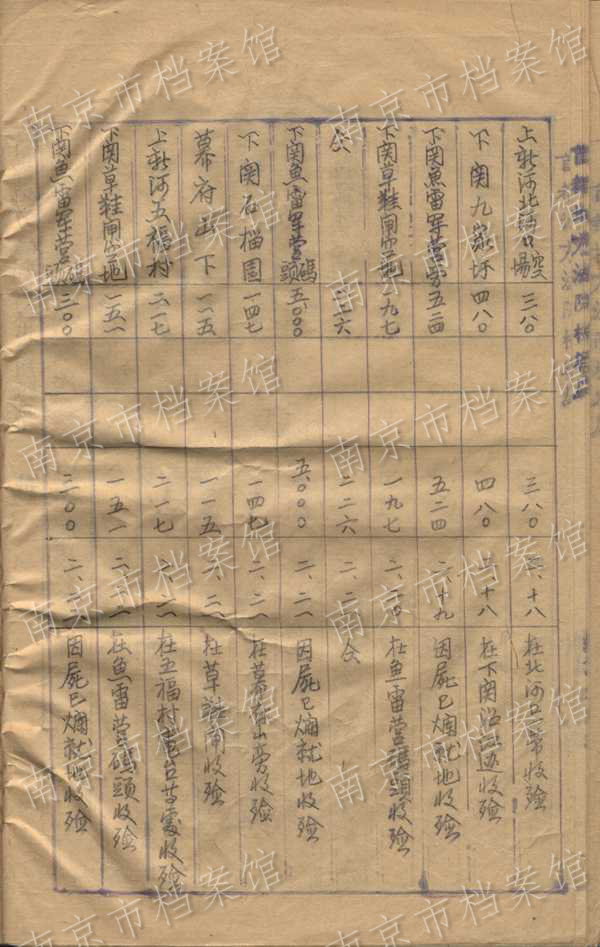 上新河北河口空場 三八〇 三八〇 二、十八 在北河口 收殮
下関九家圩 四八〇 四八〇 二、十八 在下関沿江边收殮
下関魚雷军营旁 五二四 五二四 二、十九 因屍已爛就地收殮
下関草鞋閘空地 一九七 一九七 二、二〇 在魚雷营碼頭收殮
仝 二二六 二二六 二、二一 仝
下関魚雷军营碼頭 五〇〇〇 五、〇〇〇 二、二一 因屍已爛就地收殮
下関石榴園 一四七 一四七 二、二一 在幕府山旁收殮
幕府山下 一一五 一一五 二、二一 在草鞋閘收殮
上新河五福村 二一七 二一七 二、二一 在五福村 台等處收殮
下関草鞋閘空地 一五一 一五一 二、二二 在魚雷营碼頭收殮
下関魚雷军营碼 三〇〇 三〇〇 二、 因屍已爛就地收殮
南京市档案馆